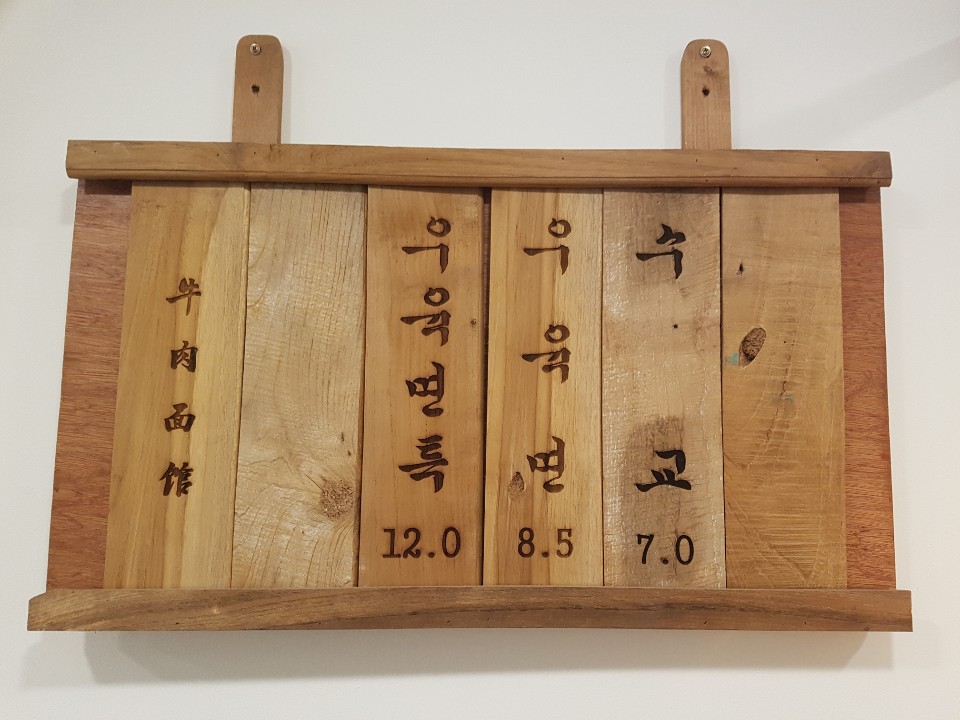 牛肉面馆
우육면특
12.0
우육면
8.5
수교
7.0